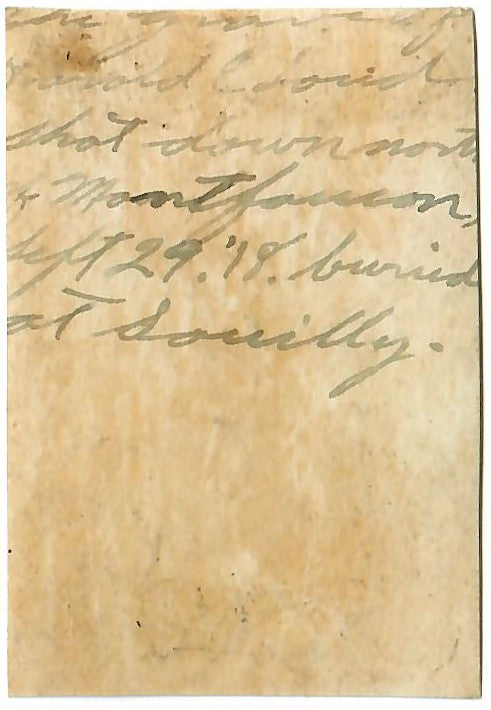 the grave of
shot down north
of Montfaucon,
Sept 29. '18. buried
at Souilly.